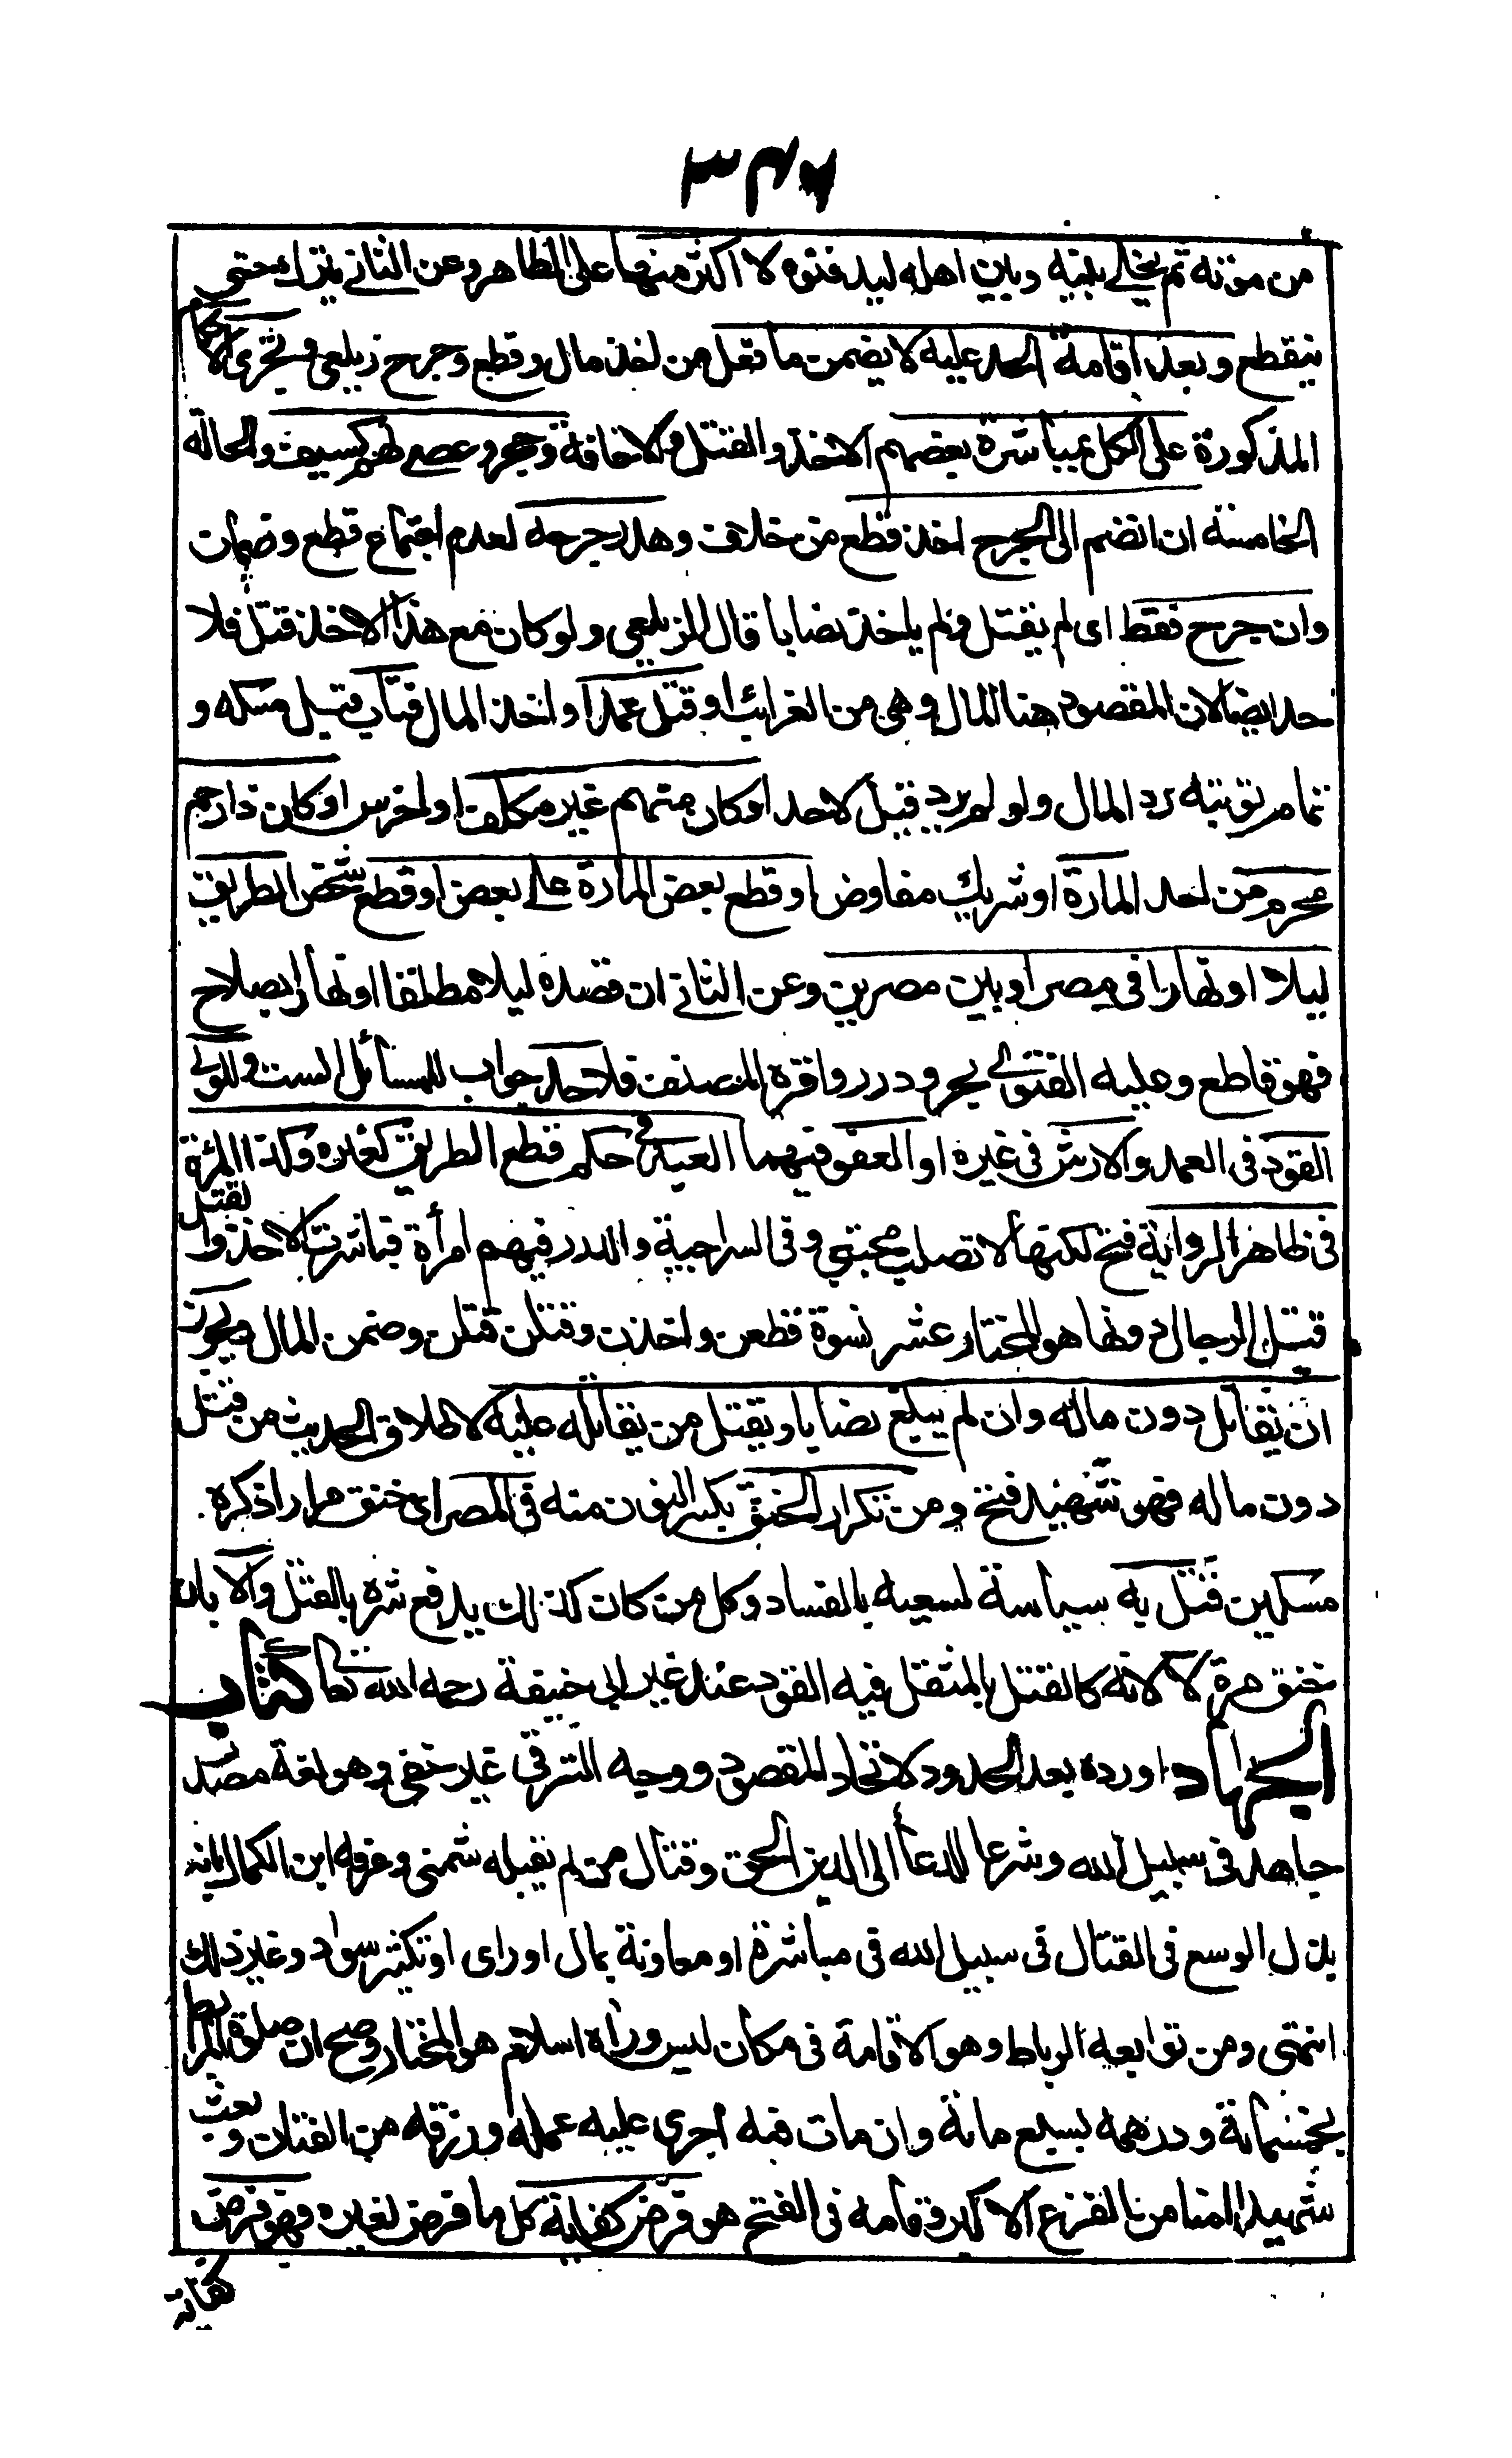 ٣٤٧
من موته ثم يخلى بينه وبين اهله ليدفنوه لا اكثر منها على الظاهر وعن الثانى يترك حتى
ينقطع وبعد اقامة الحد عليه لا يضمن ما فعل من اخذ مال وقطع وجرح زيلعى وتجرى الاحكام
المذكورة على الكل بمباشرة بعضهم الاخذ والقتل والاخافة وحجر وعصى لهم كسيف والحالة
الخامسة ان انضم الى الجرح اخذ قطع من خلاف وهدر جرحه لعدم اجتماع قطع وضمان
وان جرح فقط اى لم يقتل ولم ياخذ نصابا قال الزيلعى ولو كان مع هذا الاخذ قتل فلا
حد ايضا لان المقصود هنا المال وهى من الغرائب او قتل عمدا واخذ المال فتاب قبل مسكه و
تمام توبته رد المال ولو لم يرد قيل لا حد او كان منهم غير مكلف او اخرس او كان ذا رحم
محرم من احد المارة او شريك مفاوض او قطع بعض المارة على بعض او قطع شخص الطريق
ليلا او نهارا فى مصر او بين مصرين وعن الثانى ان قصده ليلا مطلقا او نهارا بسلاح
فهو قاطع وعليه الفتوى بحر ودرر واقره المصنف فلا حد جواب للمسائل الست وللولى
القود فى العمد والارش فى غيره او العفو فيهما العبد فى حكم قطع الطريق كغيره وكذا المرئة
فى ظاهر الرواية فتح لكنها لا تصلب مجتبى وفى السراجية والدرر فيهم امرأة فباشرت الاخذ والقتل
قتل الرجال دونها هو المختار عشر نسوة قطعن واخذن وقتلن قتلن وضمن المال ويجوز
ان يقاتل دون ماله وان لم يبلغ نصابا ويقتل من يقاتله عليه لاطلاق الحديث من قتل
دون ماله فهو شهيد فتح ومن تكرار الخنق بكسر النون منه فى المصر اى خنق مرارا ذكره
مسكين قتل به سياسة لسعيه بالفساد وكل من كان كذلك يدفع شره بالقتل والا بان
خنق مرة لا لانه كالقتل بالمثقل فيه القود عند غير ابى حنيفة رحمه الله تعا كتاب
الجهاد اورده بعد الحدود لاتحاد المقصود ووجه الترقى غير خفى وهو لغة مصد
جاهد فى سبيل الله وشرعا الدعأ الى الدين الحق وقتال من لم يقبله شمنى وعرفه ابن الكمال بانه
بذل الوسع فى القتال فى سبيل الله فى مباشرة او معاونة بمال او راى او تكثير سواد وغير ذلك
انتهى ومن توابعه الرباط وهو الاقامة فى مكان ليس وراه اسلام هو المختار وصح ان صلوة المرابط
بخمسمائة ودرهمه بسبع مائة وان مات فيه اجرى عليه عمله ورزقه من الفتان وبعث
شهيدا امنا من الفزع الاكبر وتمامه فى الفتح هو فرض كفاية كل ما فرض لغيره فهو فرض
كفاية